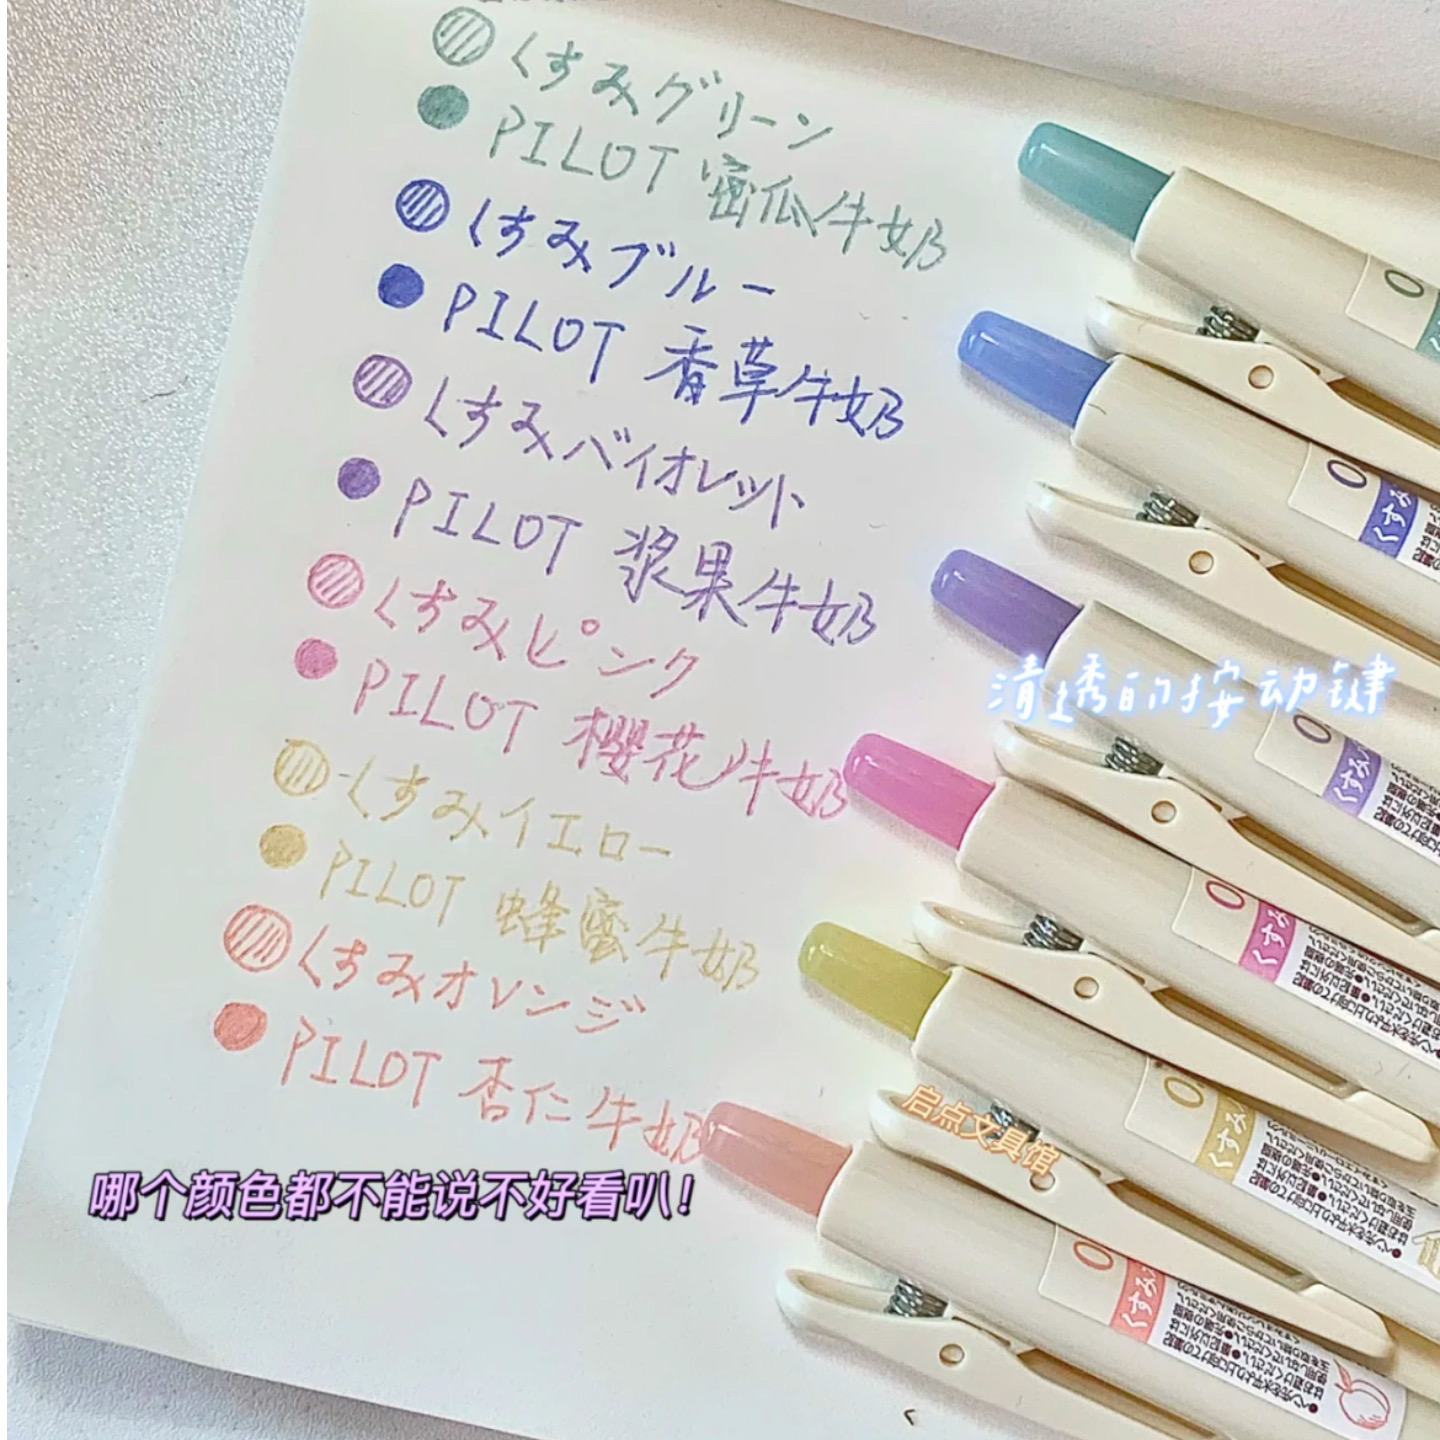 くすみグリーン
PILOT 蜜瓜牛奶
くすみブルー
PILOT 香草牛奶
くすみバイオレット
PILOT 浆果牛奶
くすみピンク
PILOT 樱花牛奶
くすみイエロー
PILOT 蜂蜜牛奶
くすみオレンジ
PILOT 杏仁牛奶
清透的按动键
启点文具馆
哪个颜色都不能说不好看叭！
くすみ
くすみ
くすみ
くすみ
くすみ